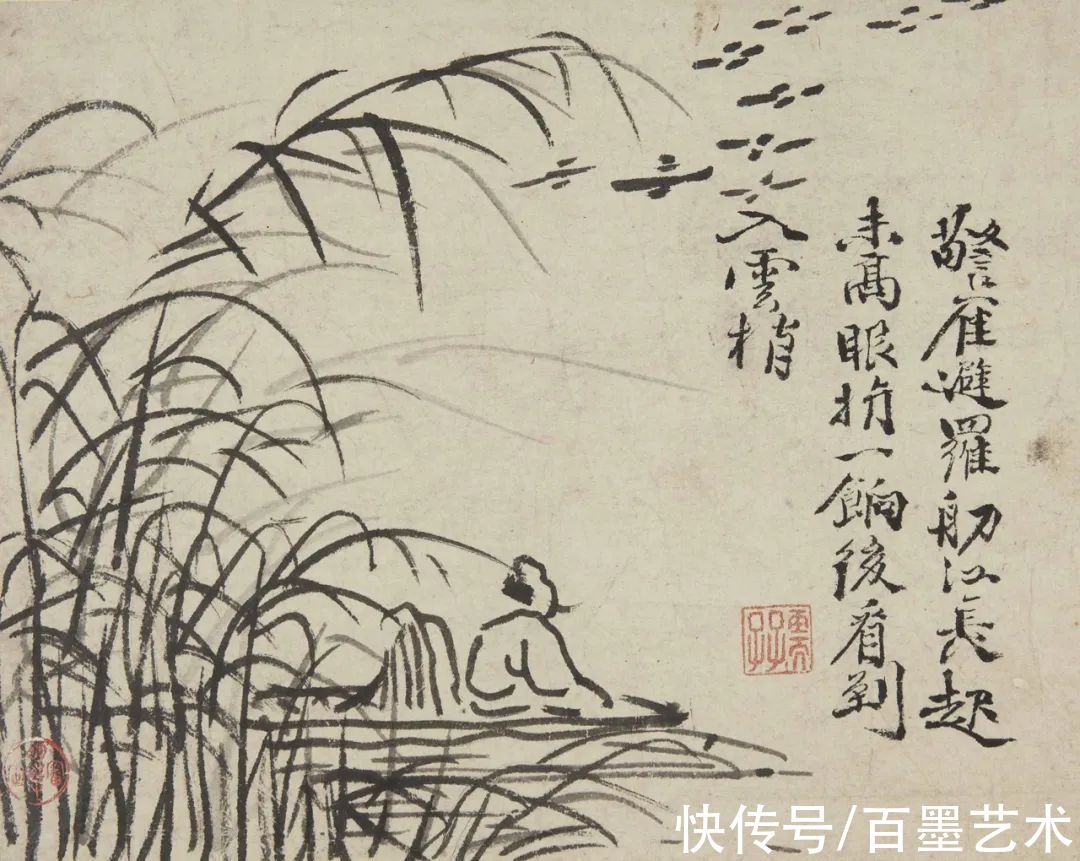 警雁避羅舠江長起
未高眼一餉後看到
入雲梢
快传号/百墨艺术